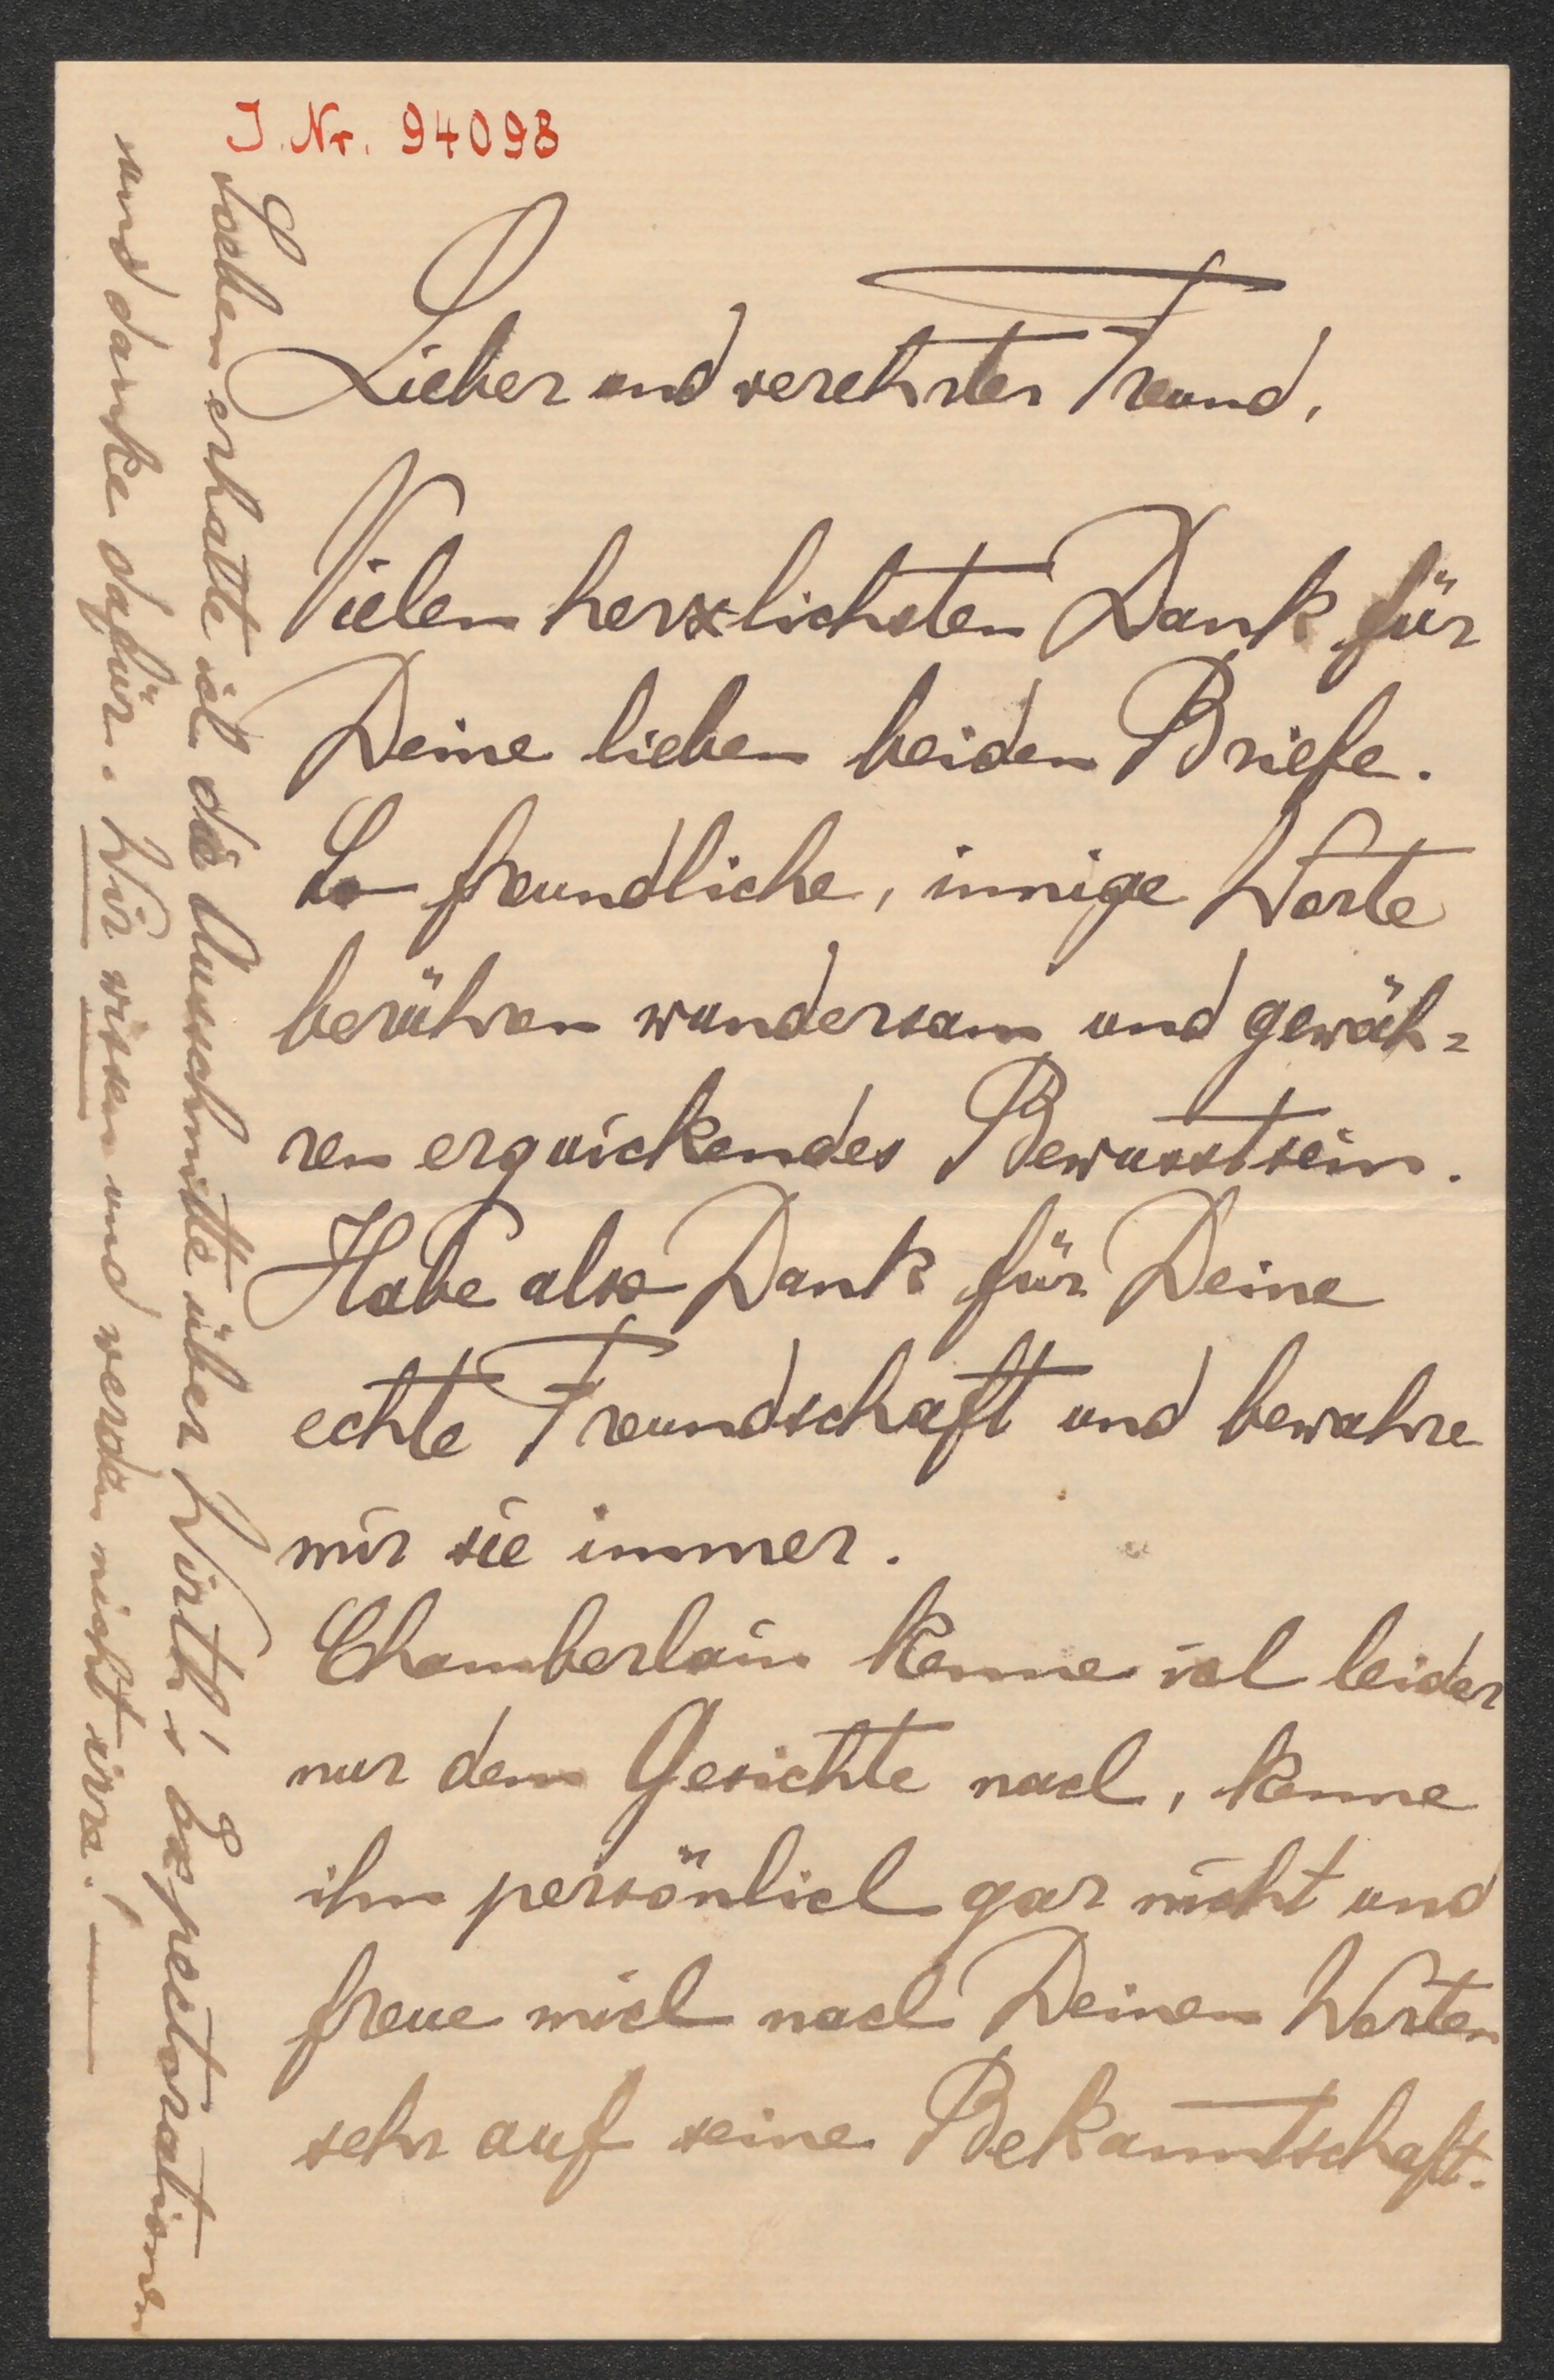 J. Nr. 94098
Lieber und verehrter Freund,
Vielen herzlichsten Dank für
Deine lieben beiden Briefe.
So freundliche, innige Worte
berühren wundersam und gewäh=
ren erquickendes Bewusstsein.
Habe also Dank für Deine
echte Freundschaft und bewahre
mir sie immer.
Chamberlain kenne ich leider
nur dem Gesichte nach, kenne
ihn persönlich gar nicht und
freue mich nach Deinen Worten
sehr auf seine Bekanntschaft.
Soeben erhalte ich die Ausschnitte über Wirth's Expectorationen
und danke dafür. Wir wissen und werden nicht irre! —